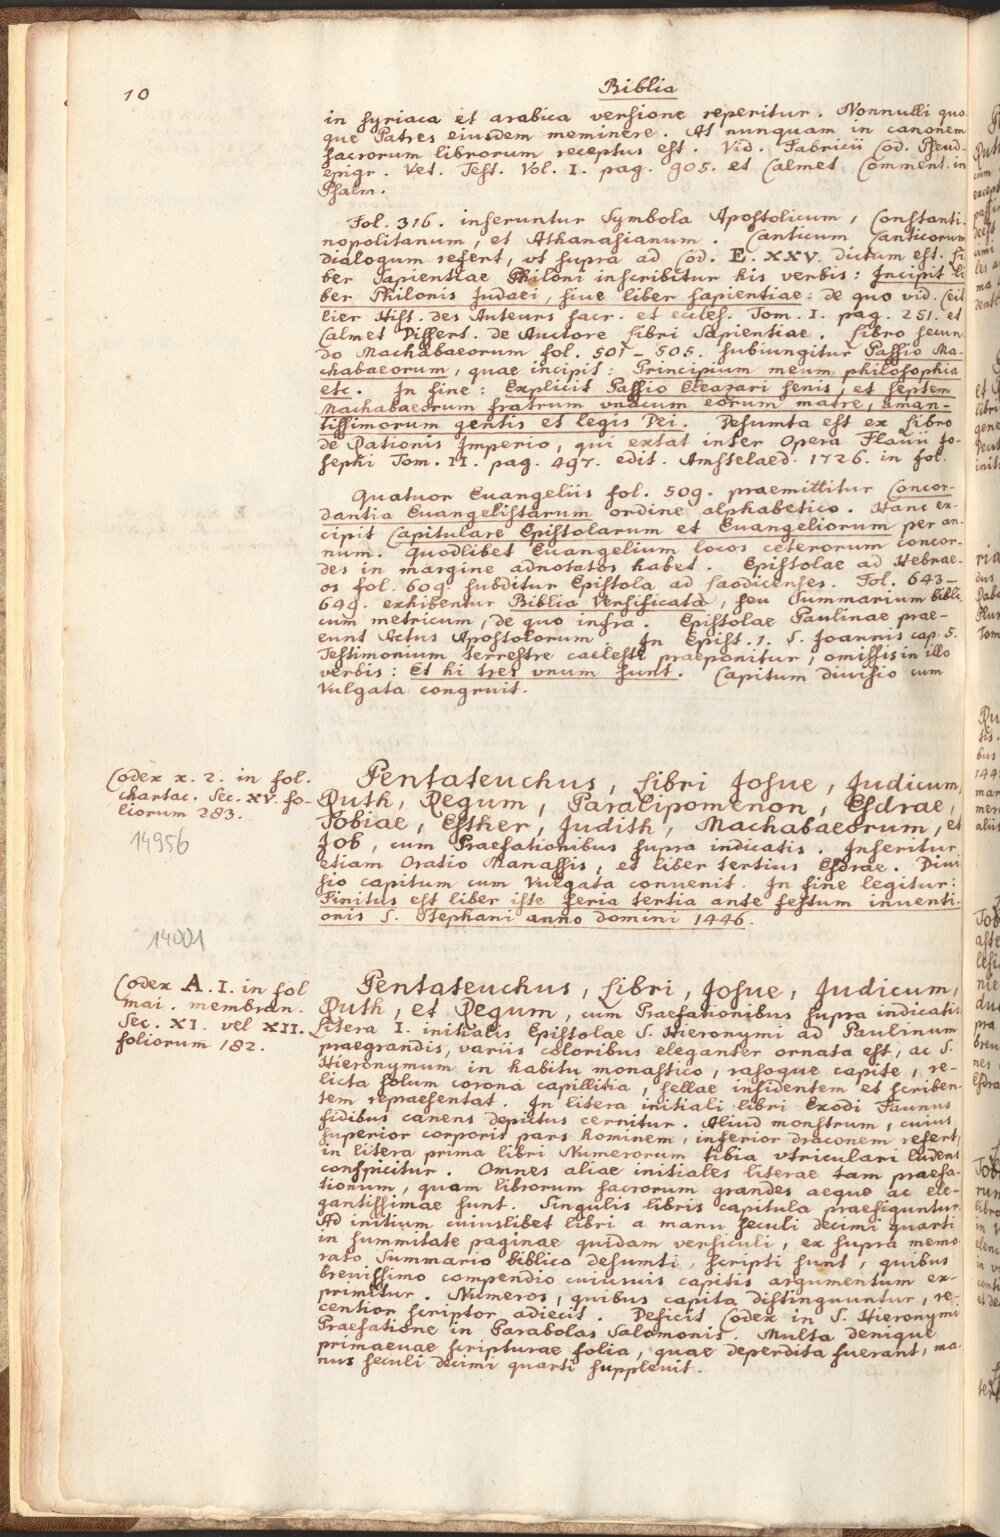 10
Biblia
in syriaca et arabica versione reperitur. Nonnulli quo
que Patres eiusdem meminere. At nunquam in canonem
sacrorum librorum receptus est. Vid. Fabricii Cod. Pseud-
epigr. Vet. Test. Vol. I. pag. 905. et Calmet Comment. in
Psalm.
Fol. 316. inseruntur Symbola Apostolicum, Constanti-
nopolitanum, et Athanasianum. Canticum Canticorum
dialogum refert, vt supra ad Cod. E. XXV. dictum est. Li
ber Sapientiae Philoni inscribitur his verbis: Incipit li
ber Philonis Judaei, siue liber sapientiae: de quo vid. Ceil
lier Hist. des Auteurs sacr. et eccles. Tom. I. pag. 251. et
Calmet Dissert. de Auctore Libri Sapientiae. Libro secun
do Machabaeorum fol. 501-505. subiungitur Passio Ma-
chabaeorum, quae incipit: Principium meum philosophia
etc. In fine: Explicit Passio Eleazari senis, et septem
Machabaeorum fratrum vnacum eorum matre, aman-
tissimorum gentis et legis Dei. Desumta est ex Libro
de Rationis Imperio, qui extat inter Opera Flauii Jo-
sephi Tom. II. pag. 497. edit. Amstelaed. 1726. in fol.
Quatuor Euangeliis fol. 509. praemittitur Concor-
dantia Euangelistarum ordine alphabetico. Hanc ex-
cipit Capitulare Epistolarum et Euangeliorum per an-
num. Quodlibet Euangelium locos ceterorum concor-
des in margine adnotatos habet. Epistolae ad Hebrae-
os fol. 609. subditur Epistola ad Laodicenses. Fol. 643-
649. exhibentur Biblia Versificata, seu Summarium bibli
cum metricum, de quo infra. Epistolae Paulinae prae-
eunt Actus Apostolorum In Epist. 1. S. Joannis cap. 5.
Testimonium terrestre caelesti praeponitur, omissis in illo
verbis: Et hi tres vnum sunt. Capitum diuisio cum
Vulgata congruit.
Codex X. 2. in fol.
chartac. Sec. XV. fo-
liorum 283.
14956
Pentateuchus, Libri Josue, Judicum,
Ruth, Regum, Paralipomenon, Esdrae,
Tobiae, Esther, Judith, Machabaeorum, et
Job, cum Praefationibus supra indicatis. Inseritur
etiam Oratio Manassis, et liber tertius Esdrae. Diui
sio capitum cum Vulgata conuenit. In fine legitur:
Finitus est liber iste feria tertia ante festum inuenti-
onis S. Stephani anno domini 1446.
14001
Codex A. I. in fol
mai. membran.
Sec. XI. vel XII.
foliorum 182.
Pentateuchus, Libri, Josue, Judicum,
Ruth, et Regum, cum Praefationibus supra indicatis.
Litera I. initialis Epistolae S. Hieronymi ad Paulinum
praegrandis, variis coloribus eleganter ornata est, ac S.
Hieronymum in habitu monastico, rasoque capite, re-
licta solum corona capillitia, sellae insidentem et scriben-
tem repraesentat. In litera initiali libri Exodi Faunus
fidibus canens depictus cernitur. Aliud monstrum, cuius
superior corporis pars hominem, inferior draconem refert,
in litera prima libri Numerorum tibia vtriculari ludens
conspicitur. Omnes aliae initiales literae tam praefa-
tionum, quam librorum sacrorum grandes aeque ac ele-
gantissimae sunt. Singulis libris capitula praefiguntur.
Ad initium cuiuslibet libri a manu seculi decimi quarti
in summitate paginae quidam versiculi, ex supra memo
rato Summario biblico desumti, scripti sunt, quibus
breuissimo compendio cuiusuis capitis argumentum ex-
primitur. Numeros, quibus capita distinguuntur, re-
centior scriptor adiecit. Deficit Codex in S. Hieronymi
Praefatione in Parabolas Salomonis. Multa denique
primaeuae scripturae folia, quae deperdita fuerant, ma-
nus seculi decimi quarti suppleuit.